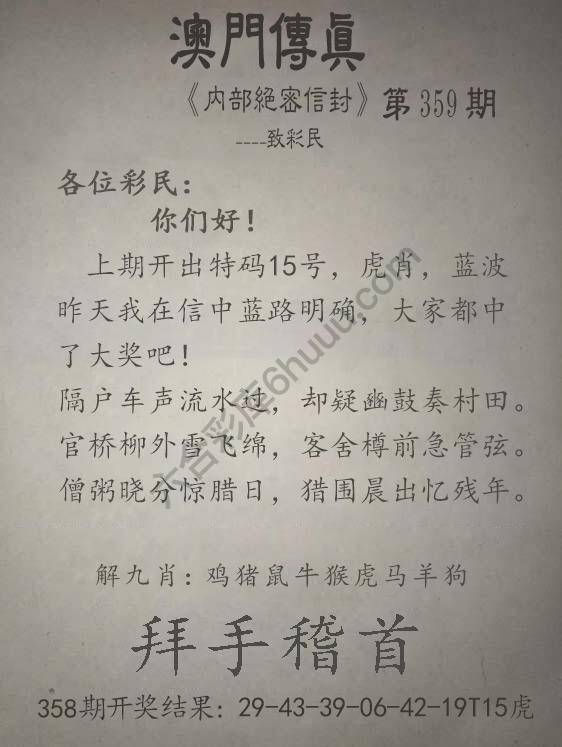 澳門傳真
《内部絕密信封》第359期
----致彩民
各位彩民:
你们好!
上期开出特码15号,虎肖,蓝波
昨天我在信中蓝路明确,大家都中
了大奖吧!
隔户车声流水过,却疑豳鼓奏村田。
官桥柳外雪飞绵,客舍樽前急管弦。
僧粥晓分惊腊日,猎围晨出忆残年。
解九肖:鸡猪鼠牛猴虎马羊狗
拜手稽首
358期开奖结果:29-43-39-06-42-19T15虎
六合彩库6huuu.com